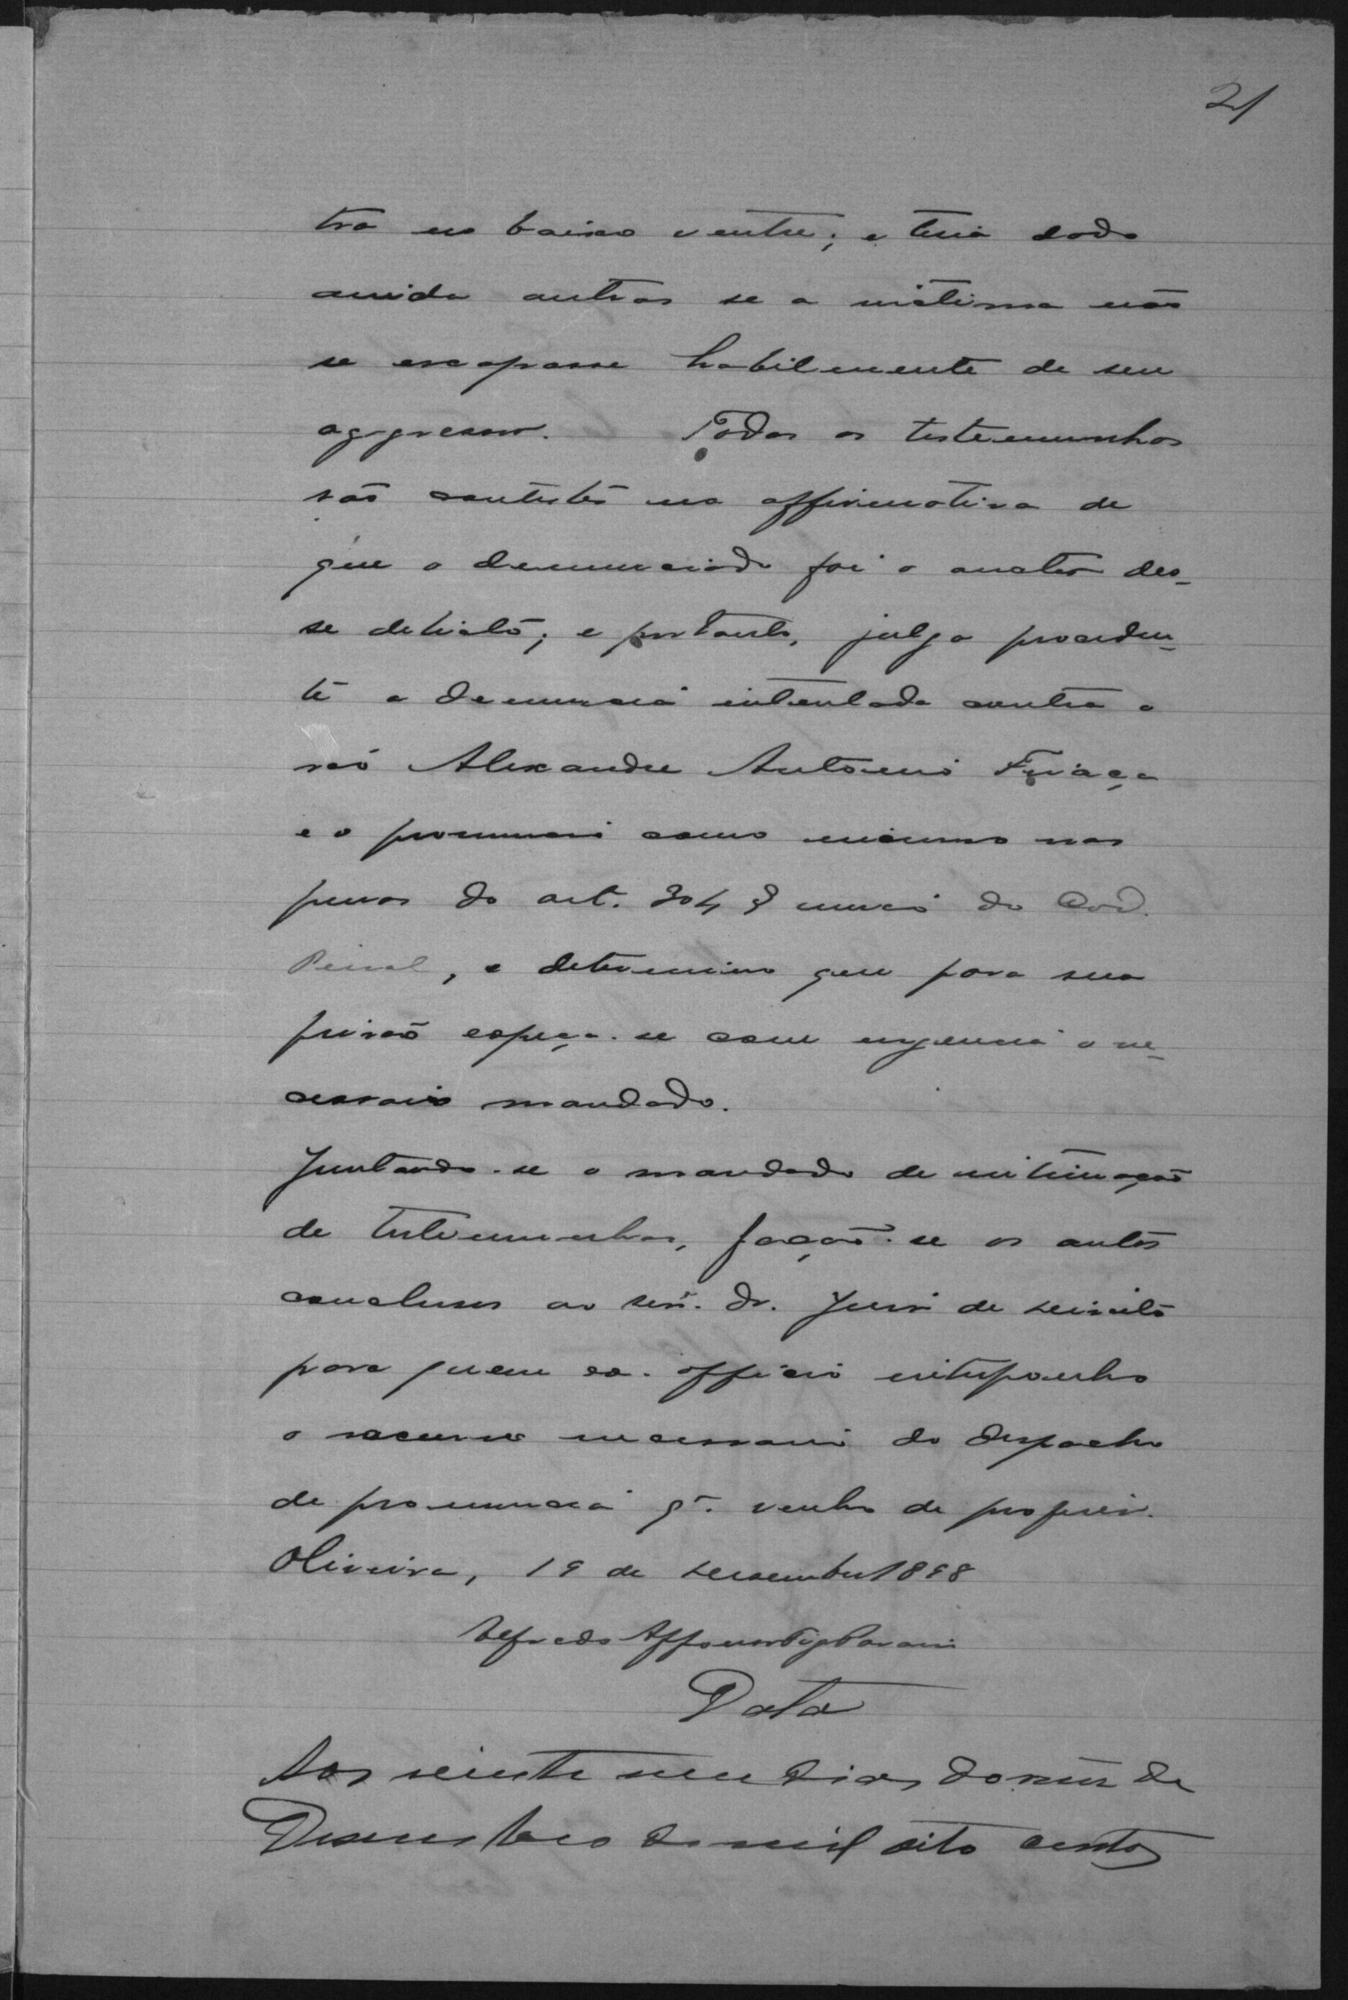 21
tra no baixo ventre; e teria dado
ainda outras se a victima não
se escapasse habilmente de seu
aggressor. Todas as testemunhas
são contestes na affirmativa de
que o denunciado foi o auctor des-
se delicto; e portanto, julgo proceden-
te a denuncia intentada contra o
reó Alexandre Antonio
e o pronuncio como incurso nas
penas do art. 304 § unico do Cod.
Penal, e determino que para sua
prisão expeça-se com urgencia o ne-
cessario mandado.
Juntando-se o mandado de intimação
de testemunhas, fação-se os autos
conclusos ao senr. dr. Juiz de direito
para quem ex-officio interponho
o recurso necessario do despacho
de pronuncia q. venho de proferir.
Oliveira, 19 de dezembro 1898
Alfredo Affonso
Data
Aos vinte um dias do mez de
Desembro de mil oito centos